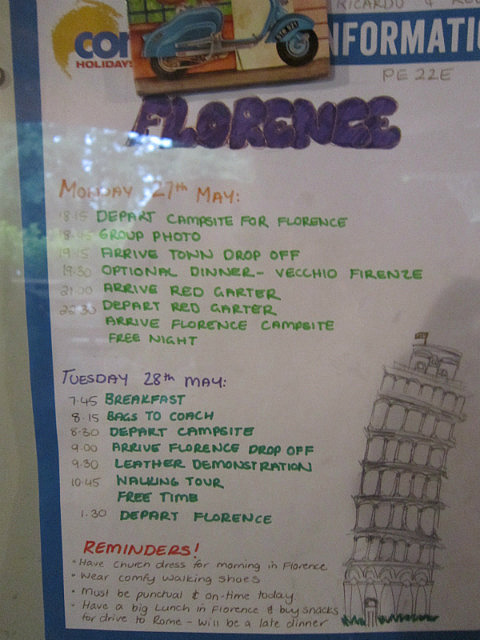 RICARDO &
CO
HOLIDAYS
NFORMATI
PE 22E
FLORENCE
MONDAY 27th MAY:
18.15 DEPART CAMPSITE FOR FLORENCE
GROUP PHOTO
19.15 ARRIVE TOWN DROP OFF
19.30 OPTIONAL DINNER - VECCHIO FIRENZE
21.00 ARRIVE RED GARTER
22.30 DEPART RED GARTER
ARRIVE FLORENCE CAMPSITE
FREE NIGHT
TUESDAY 28th MAY:
7.45 BREAKFAST
8.15 BAGS TO COACH
8.30 DEPART CAMPSITE
9.00 ARRIVE FLORENCE DROP OFF
9.30 LEATHER DEMONSTRATION
10.45 WALKING TOUR
FREE TIME
1.30 DEPART FLORENCE
REMINDERS!
- Have church dress for morning in Florence
- Wear comfy walking shoes
- Must be punctual & on-time today
- Have a big Lunch in Florence & buy snacks
for drive to Rome - will be a late dinner